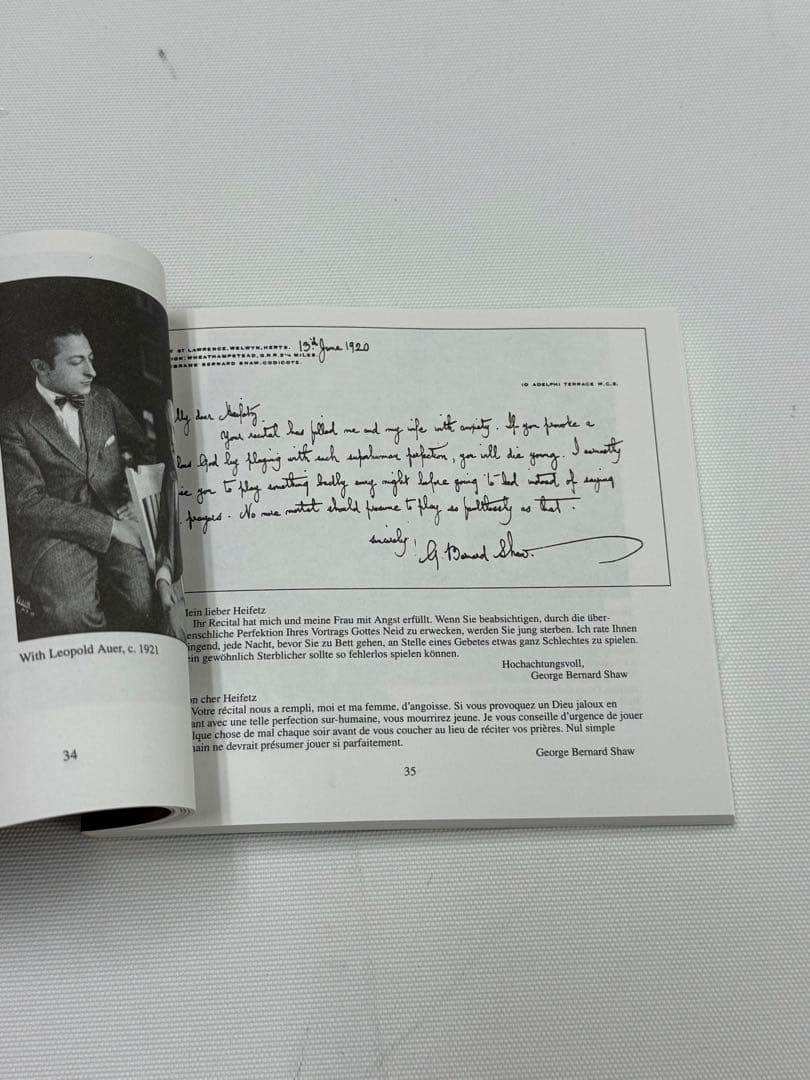 With Leopold Auer, c. 1921
34
ST LAWRENCE, WELWYN, HERTS. 13th June 1920
WHEATHAMPSTEAD, G.N.R. 2¼ MILES.
BERNARD SHAW, CODICOTE.
10 ADELPHI TERRACE W.C.2.
My dear Heifetz
Your recital has filled me and my wife with anxiety. If you provoke a
God by playing with such superhuman perfection, you will die young. I earnestly
you to play something badly every night before going to bed instead of saying
prayers. No mere mortal should presume to play so faultlessly as that.
sincerely
G. Bernard Shaw.
lein lieber Heifetz
Ihr Recital hat mich und meine Frau mit Angst erfüllt. Wenn Sie beabsichtigen, durch die über-
enschliche Perfektion Ihres Vortrags Gottes Neid zu erwecken, werden Sie jung sterben. Ich rate Ihnen
ingend, jede Nacht, bevor Sie zu Bett gehen, an Stelle eines Gebetes etwas ganz Schlechtes zu spielen.
in gewöhnlich Sterblicher sollte so fehlerlos spielen können.
Hochachtungsvoll,
George Bernard Shaw
n cher Heifetz
Votre récital nous a rempli, moi et ma femme, d'angoisse. Si vous provoquez un Dieu jaloux en
ant avec une telle perfection sur-humaine, vous mourrirez jeune. Je vous conseille d'urgence de jouer
lque chose de mal chaque soir avant de vous coucher au lieu de réciter vos prières. Nul simple
ain ne devrait présumer jouer si parfaitement.
George Bernard Shaw
35